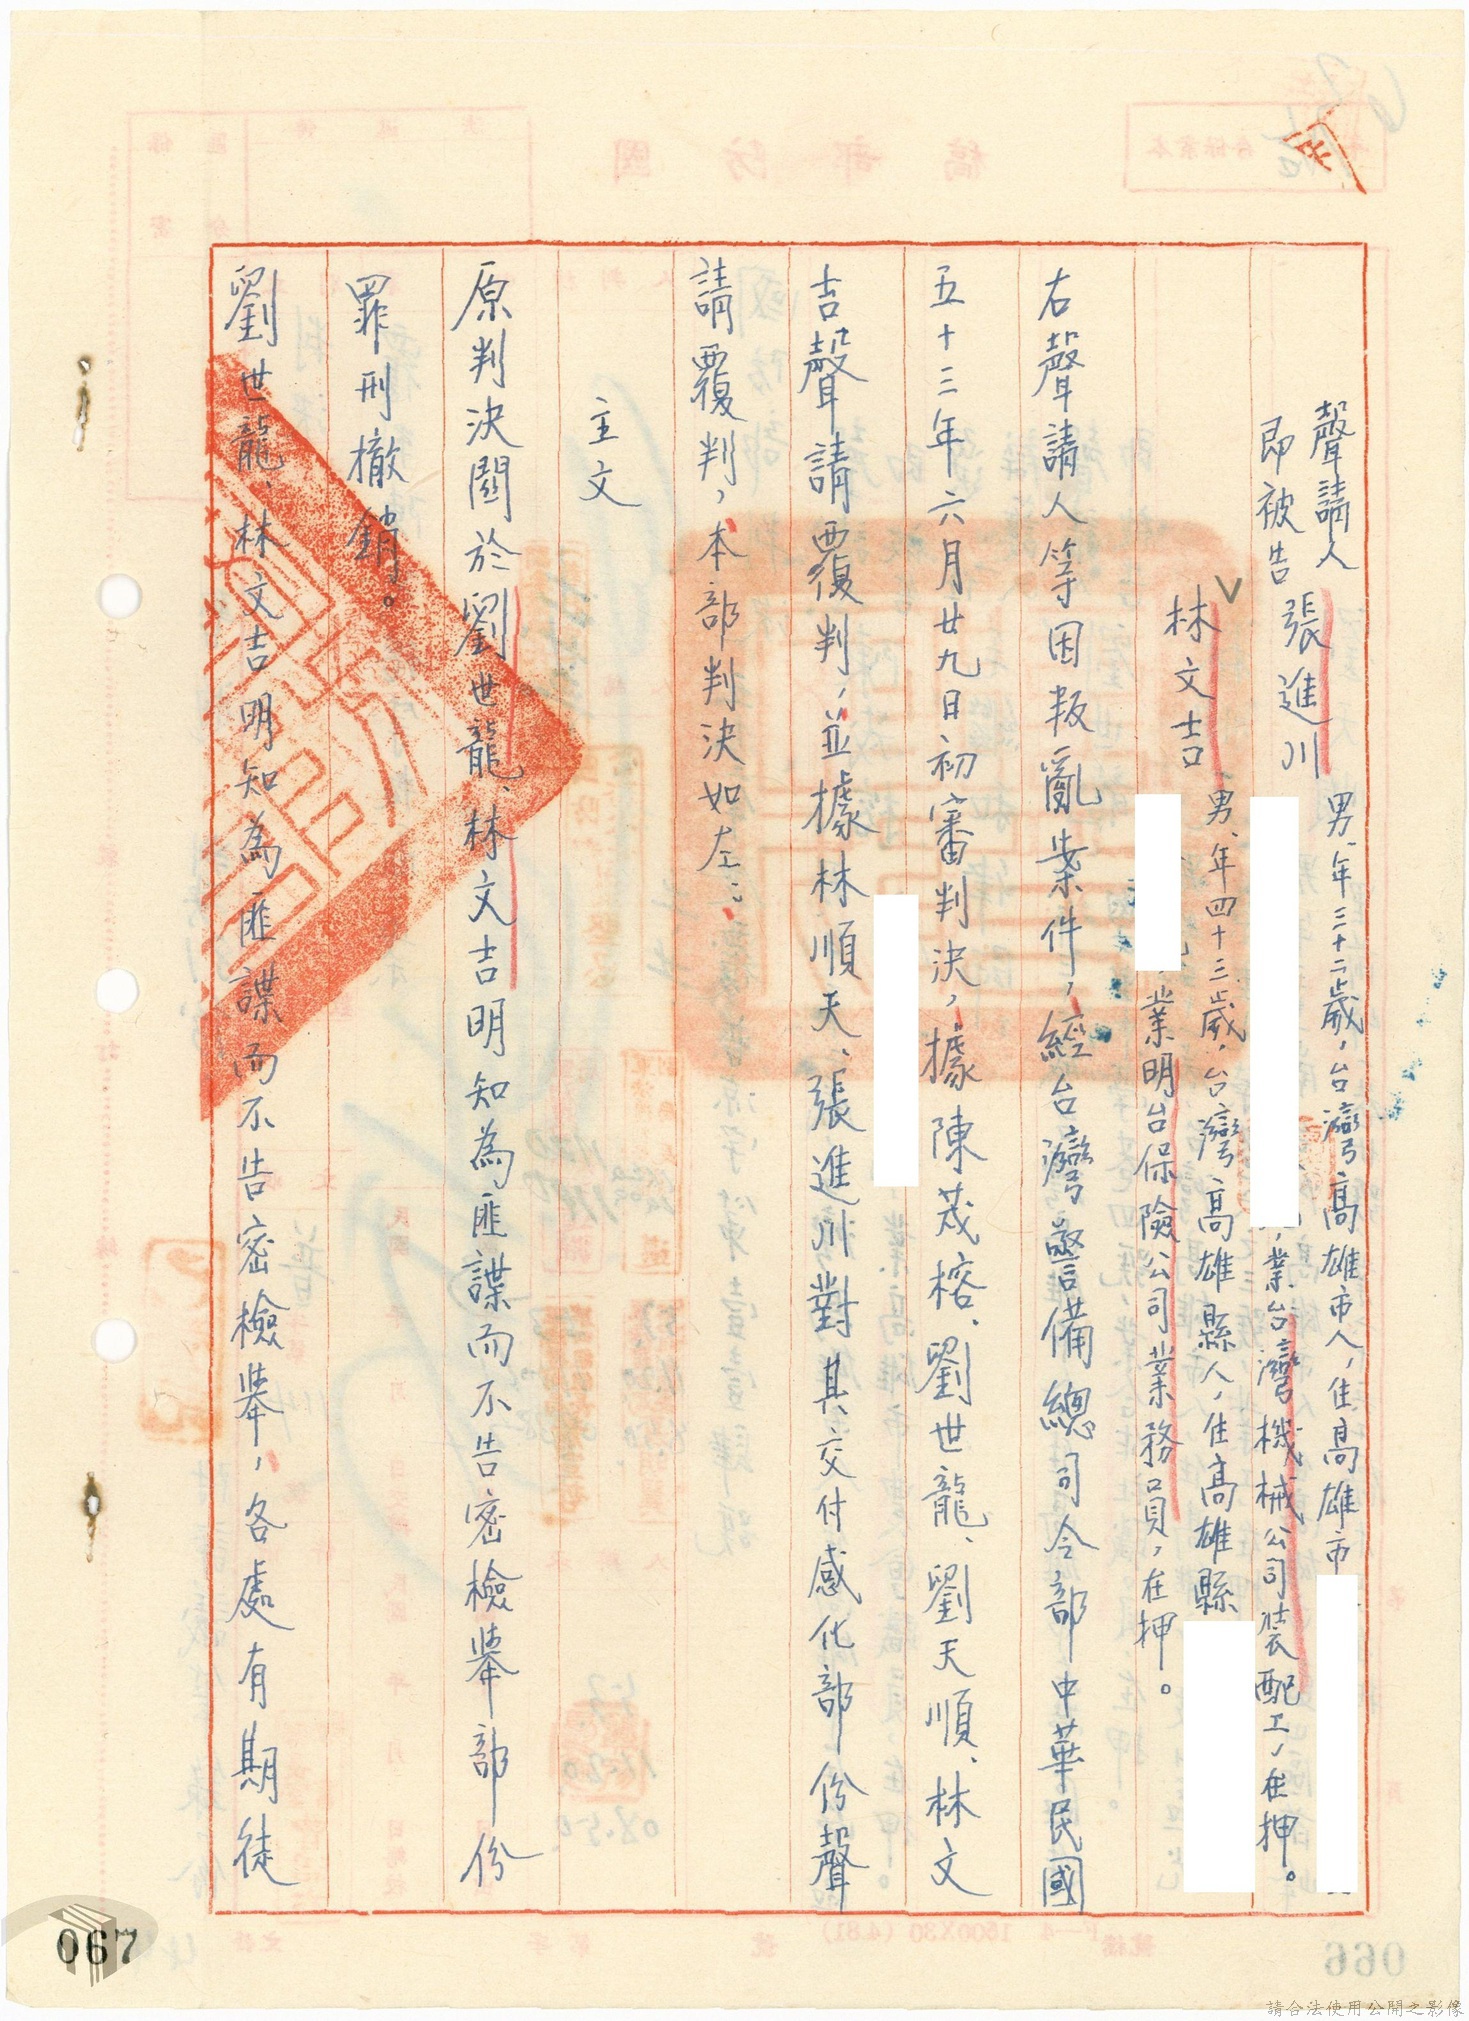 聲請人
即被告 張進川 男、年三十二歲,台灣高雄市人,住高雄市
,業台灣機械公司裝配工,在押。
林文吉 男、年四十三歲,台灣高雄縣人,住高雄縣
,業明台保險公司業務員,在押。
右聲請人等因叛亂案件,經台灣警備總司令部中華民國
五十三年六月廿九日初審判決,據陳茂榕、劉世龍、劉天順、林文
吉聲請覆判,並據林順天、張進川對其交付感化部份聲
請覆判,本部判決如左:
主文
原判決關於劉世龍、林文吉明知為匪諜而不告密檢舉部份
罪刑撤銷。
劉世龍、林文吉明知為匪諜而不告密檢舉,各處有期徒
067
請合法使用公開之影像